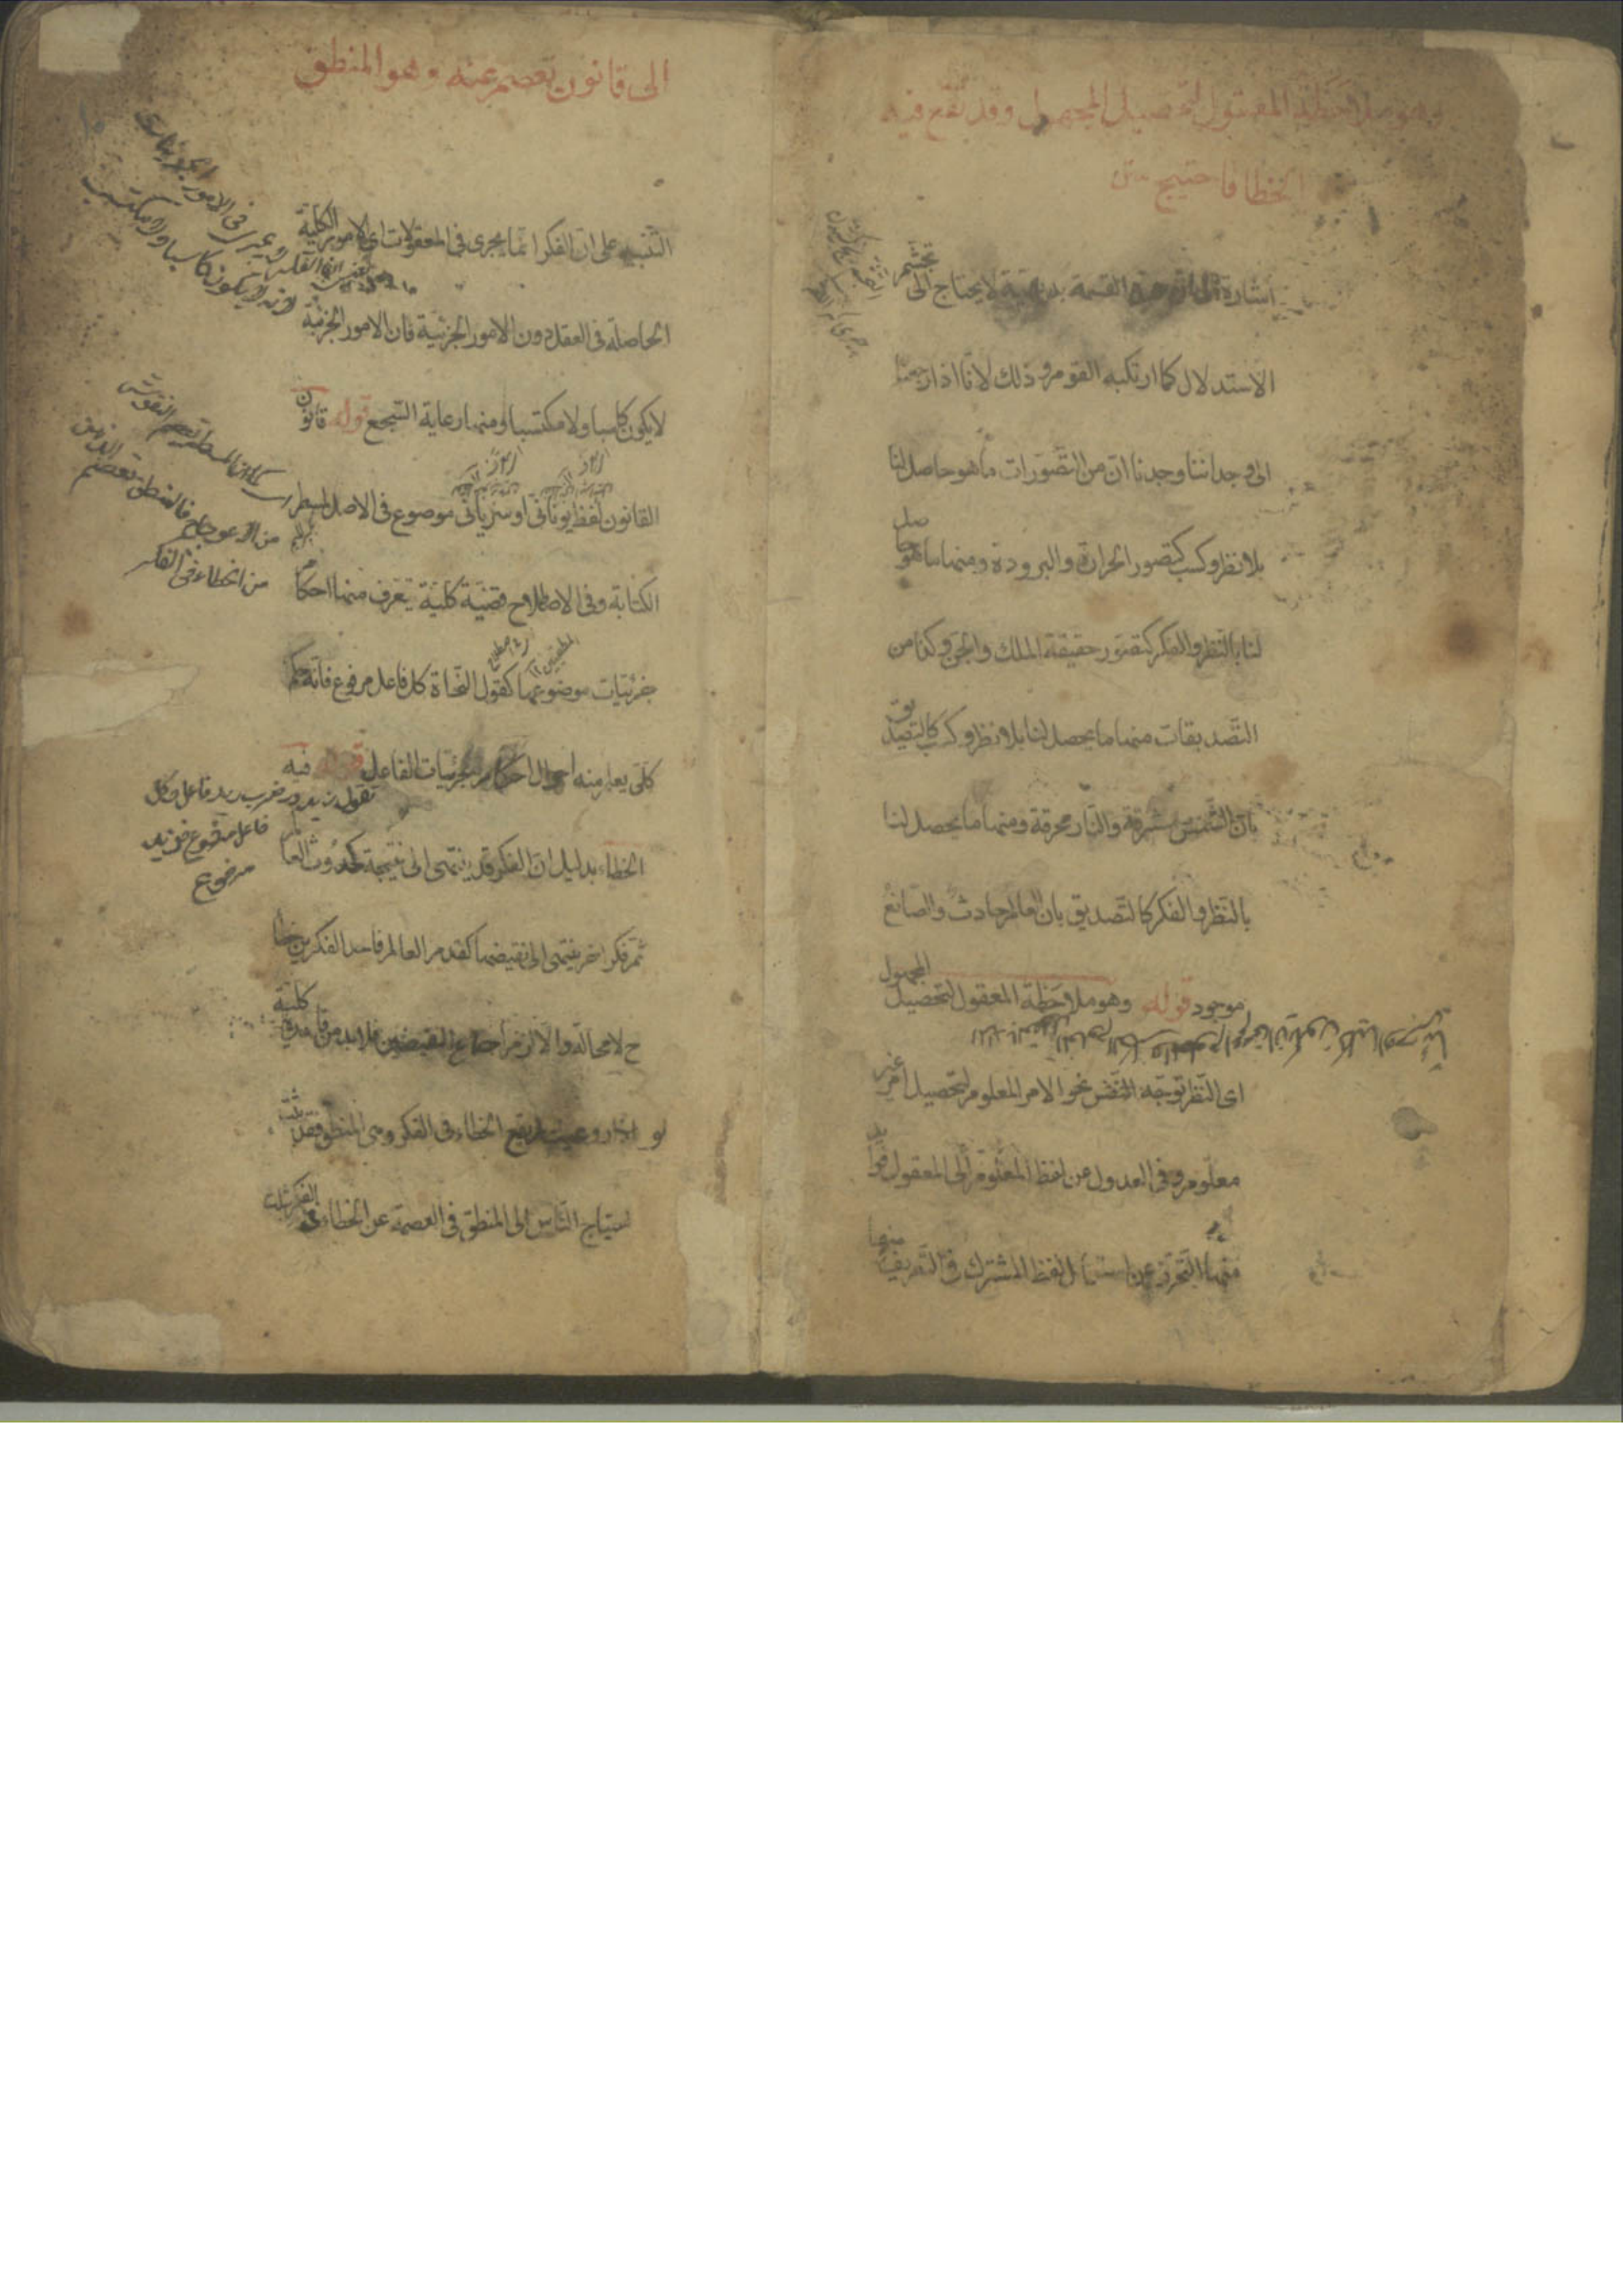 وهو ملاحظة المعقول لتحصيل المجهول وقد يقع فيه
الخطا فاحتيج متن
اشارة الى ان هذه القسمة بديهية لا يحتاج الى تجشم
الاستدلال كما ارتكبه القوم وذلك لانا اذا رجعنا
الى وجداننا وجدنا ان من التصورات ما هو حاصل لنا
بلا نظر وكسب كتصور الحرارة والبرودة ومنها ما هو حاصل
لنا بالنظر والفكر كتصور حقيقة الملك والجن وكذا من
التصديقات منها ما يحصل لنا بلا نظر وكسب كالتصديق
بان الشمس مشرقة والنار محرقة ومنها ما يحصل لنا
بالنظر والفكر كالتصديق بان العالم حادث والصانع
موجود قوله وهو ملاحظة المعقول لتحصيل المجهول
اى النظر توجه النفس نحو الامر المعلوم لتحصيل امر غير
معلوم وفى العدول عن لفظ المعلوم الى المعقول فوايد
منها التحرز عن استعمال لفظ المشترك فى التعريف منها
الى قانون تعصم عنه وهو المنطق
التنبيه على ان الفكر انما يجرى فى المعقولات اى الامور الكلية
الحاصلة فى العقل دون الامور الجزئية فان الامور الجزئية
لا يكون كاسبا ولا مكتسبا ومنها رعاية السجع قوله قانون
القانون لفظ يونانى او سريانى موضوع فى الاصل لمسطر
الكتابة وفى الاصطلاح قضية كلية تعرف منها احكام
جزئيات موضوعها كقول النحاة كل فاعل مرفوع فانه حكم
كلى يعلم منه احوال احكام جزئيات الفاعل قوله فيه
الخطاء بدليل ان الفكر قد ينتهى الى نتيجة كحدوث العالم
ثم فكر اخر ينتهى الى نقيضها كقدم العالم فاحد الفكرين خطأ
ح لا محالة والا لزم اجتماع النقيضين فلا بد من قاعدة كلية
لو روعيت لم يقع الخطاء فى الفكر وهى المنطق فقد ثبت
احتياج الناس الى المنطق فى العصمة عن الخطاء فى الفكر
كما ان المسطر تعصم النقوش
من الاعوجاج فالمنطق تعصم الذهن
من الخطاء فى الفكر
تقول زيد در ضرب زيد فاعل وكل
فاعل مرفوع فزيد
مرفوع